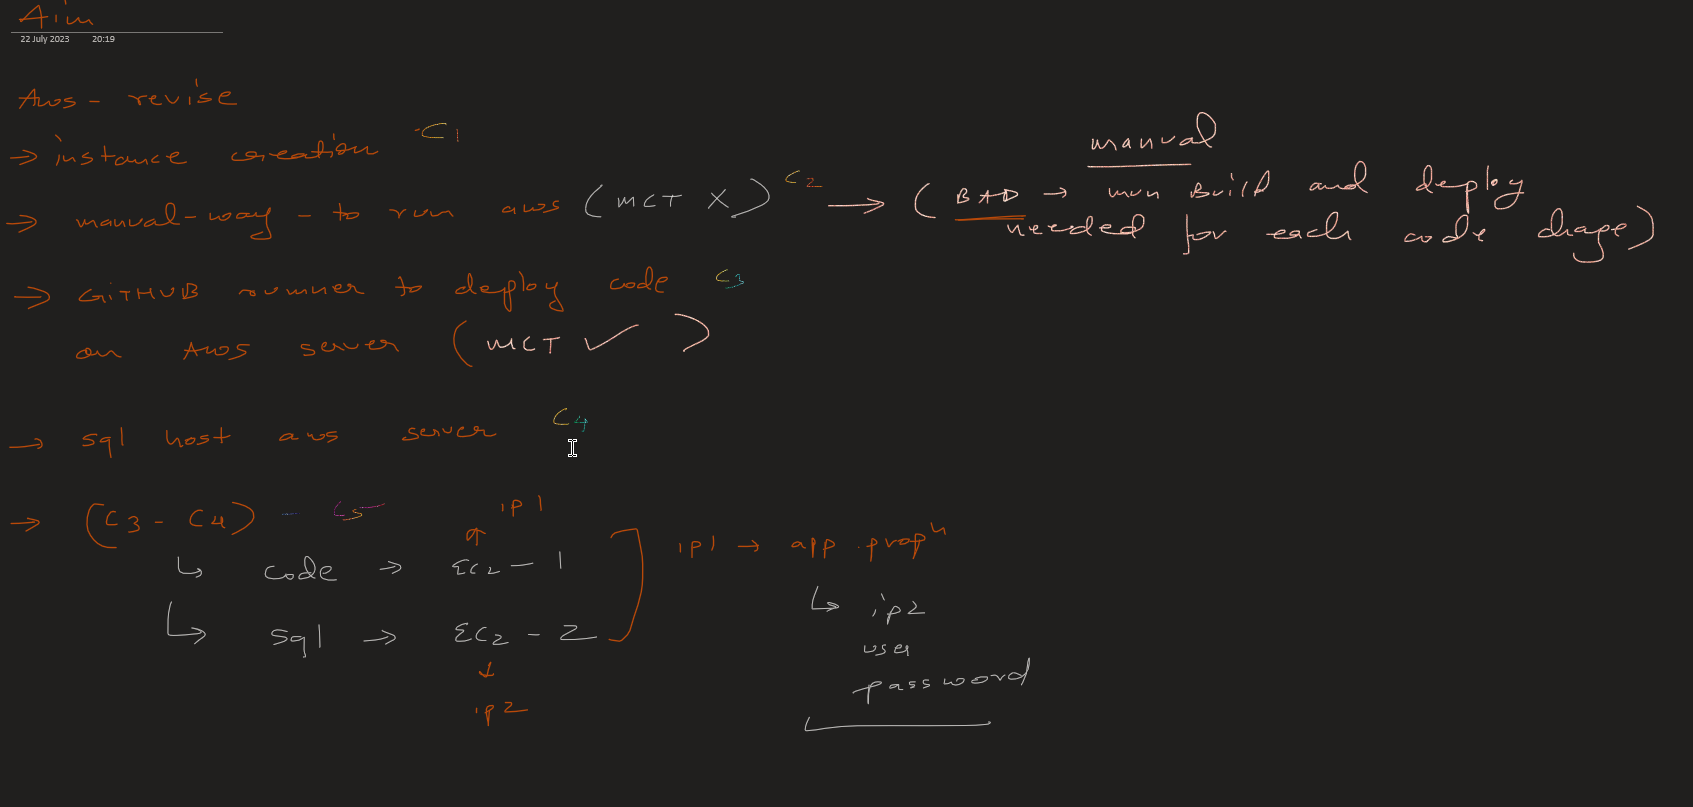 Aim
22 July 2023 20:19
Aws - revise
→ instance creation - C1
→ manual-way - to run aws (MCT X) C2 → (BAD → mvn Build and deploy
manual
needed for each code chage)
→ GITHUB runner to deploy code C3
on AWS server (MCT ✓)
→ sql host aws server C4
→ (C3 - C4) - C5
ip1
↳ code → EC2 - 1
ip1 → app.prop
↳ sql → EC2 - 2
↳ ip2
user
password
ip2